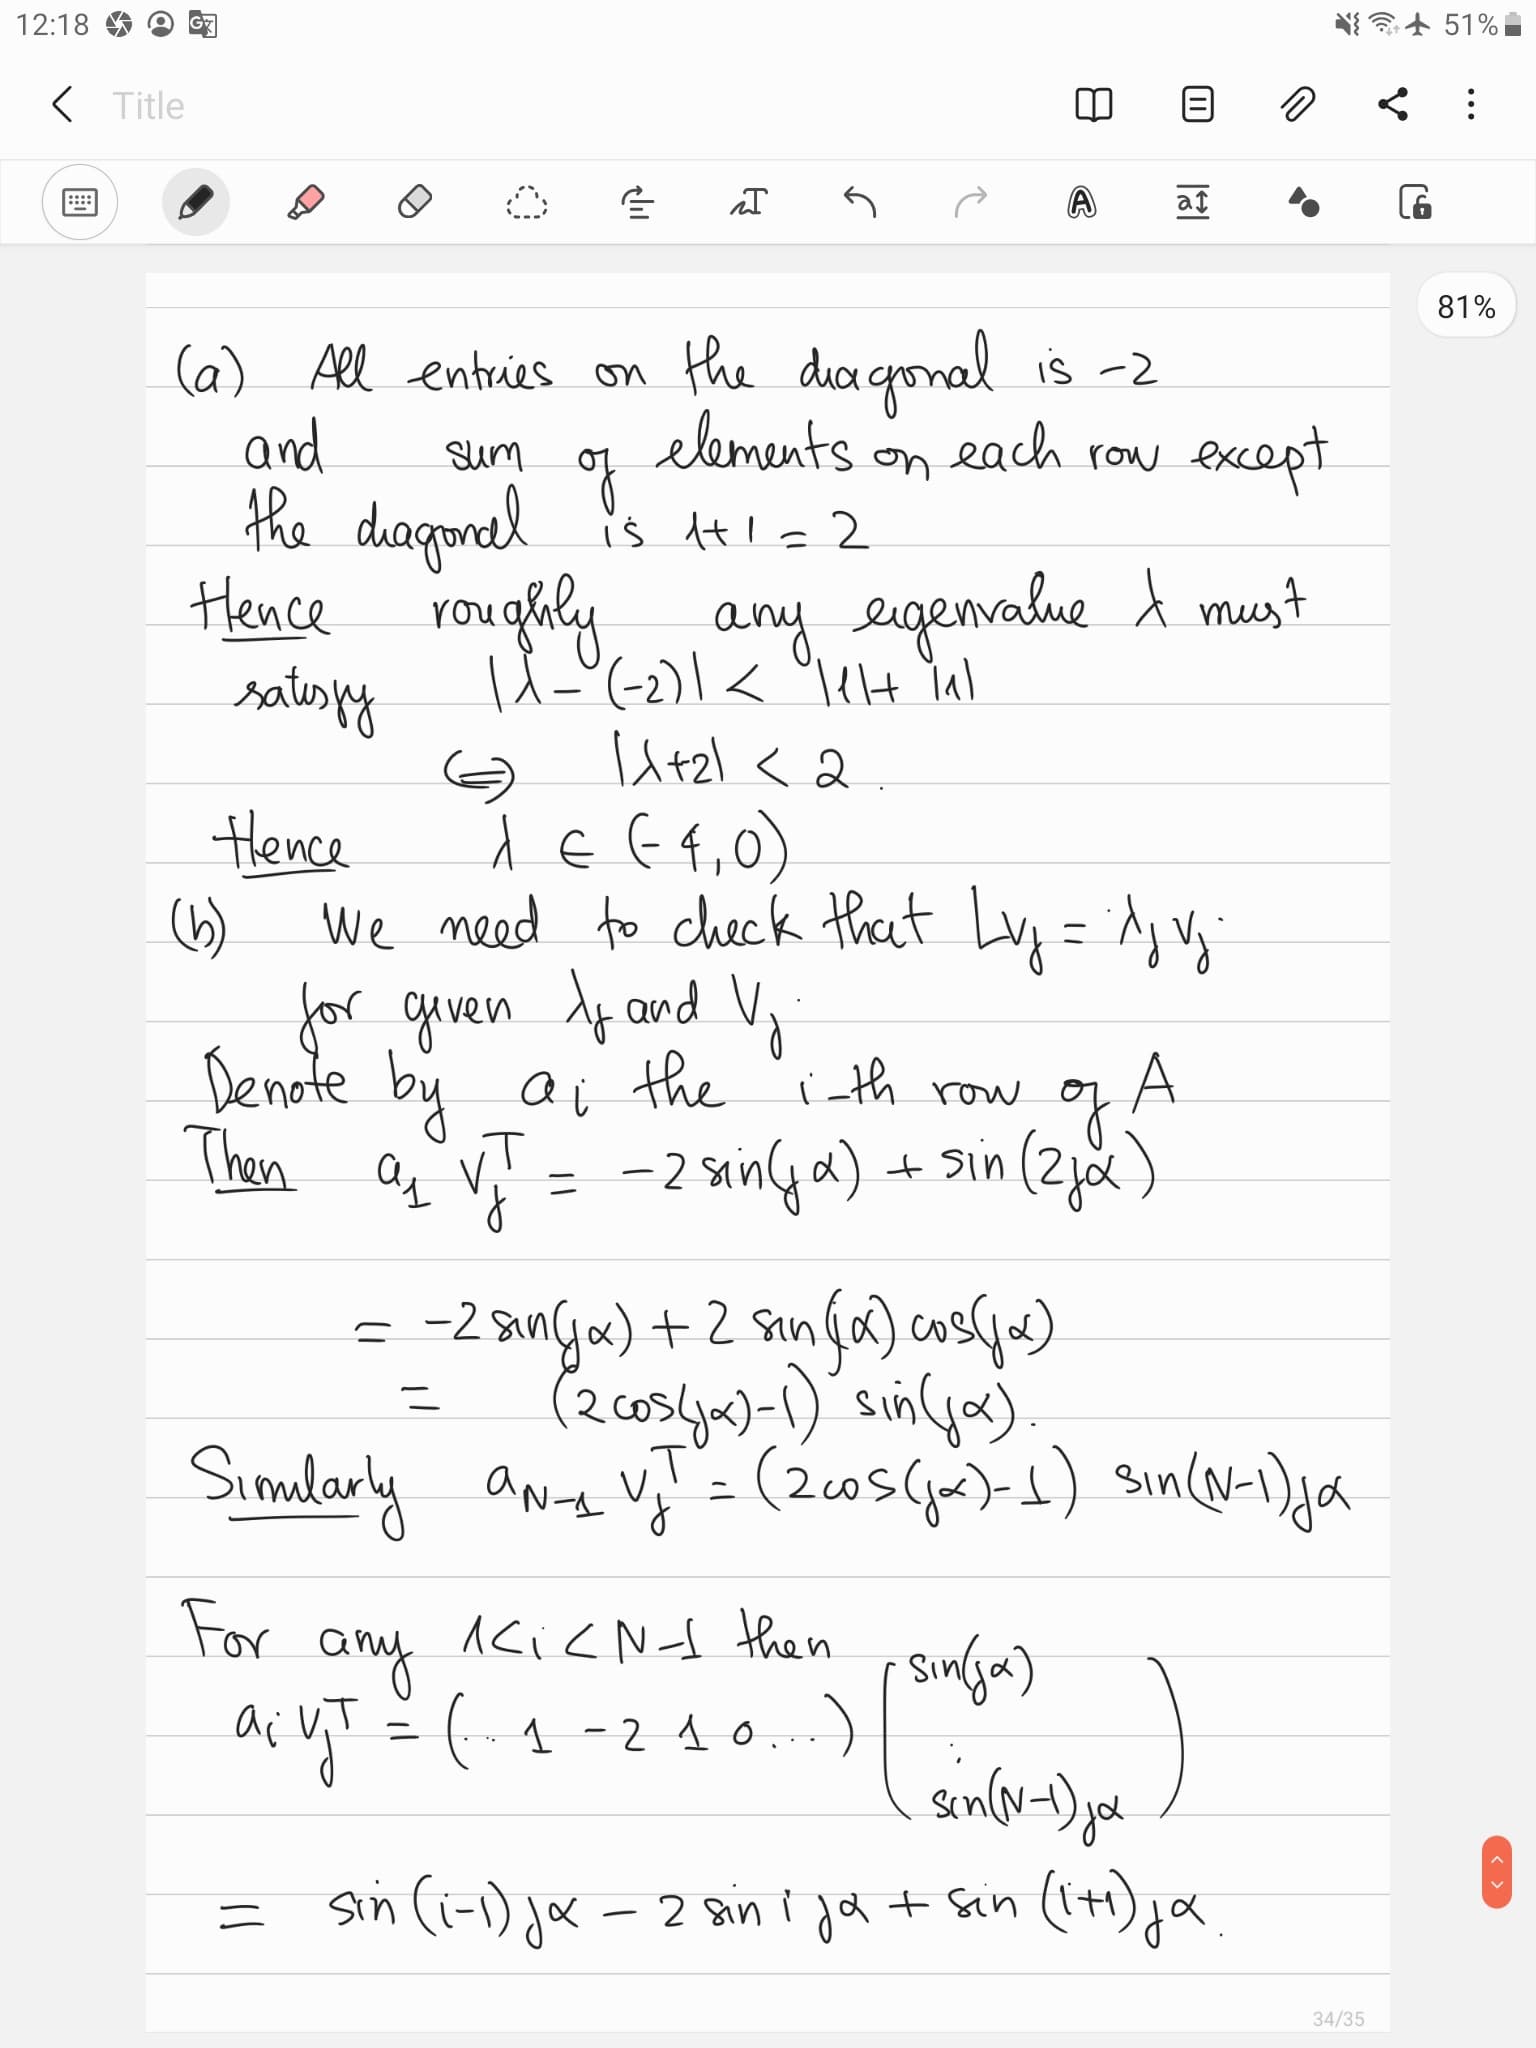 12:18
51%
Title
81%
(a) All entries on the diagonal is -2
and sum of elements on each row except
the diagonal is 1+1 = 2
Hence roughly any eigenvalue λ must
satisfy |λ-(-2)| < |1|+|1|
⇔ |λ+2| < 2.
Hence λ ∈ (-4,0)
(b) We need to check that Lvⱼ = λⱼvⱼ
for given λⱼ and Vⱼ.
Denote by aᵢ the i-th row of A
Then a₁ vⱼᵀ = -2 sin(jα) + sin(2jα)
= -2 sin(jα) + 2 sin(jα) cos(jα)
= (2cos(jα)-1) sin(jα).
Similarly a_{N-1} vⱼᵀ = (2cos(jα)-1) sin(N-1)jα
For any 1<i<N-1 then
sin(jα)
aᵢvⱼᵀ = (... 1 -2 1 0 ...) ⋮
sin(N-1)jα
= sin(i-1)jα - 2 sin i jα + sin(i+1)jα.
34/35